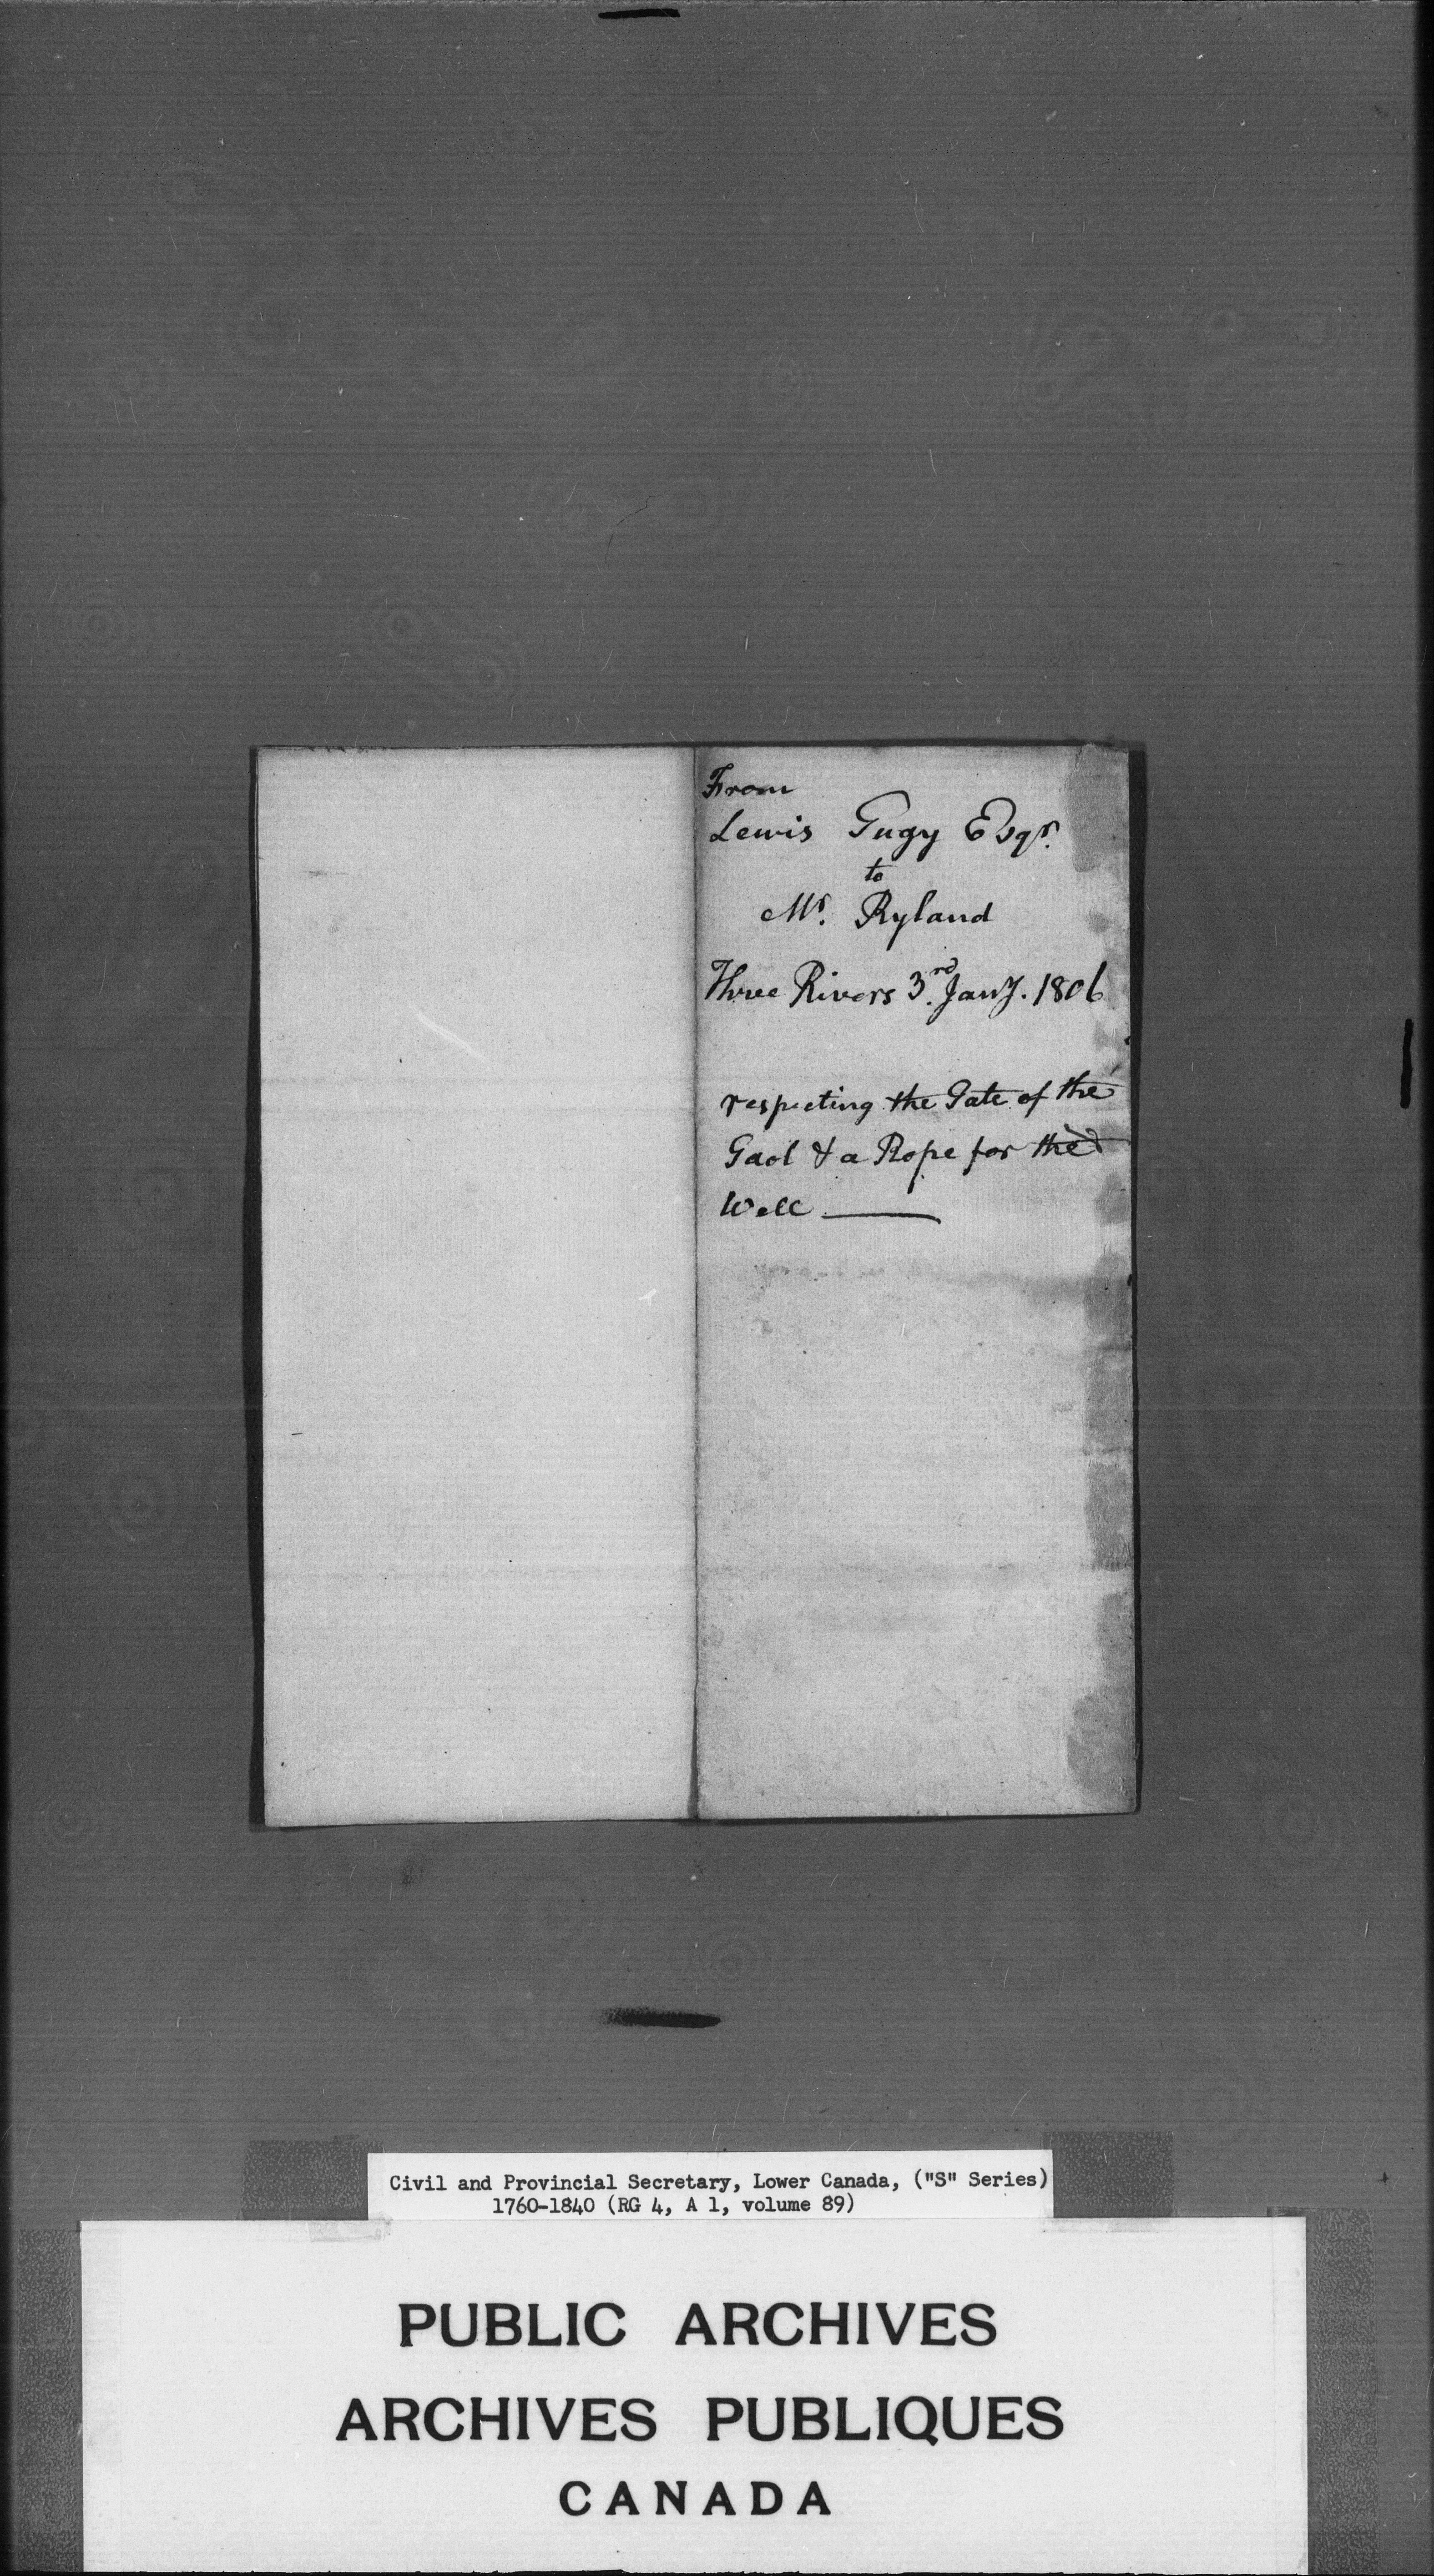 From
Lewis Gugy Esqr.
to
Mr. Ryland
Three Rivers 3.rd Jany. 1806
respecting the Gate of the
Gaol & a Rope for the
Well ———
Civil and Provincial Secretary, Lower Canada, ("S" Series)
1760-1840 (RG 4, A 1, volume 89)
PUBLIC ARCHIVES
ARCHIVES PUBLIQUES
CANADA